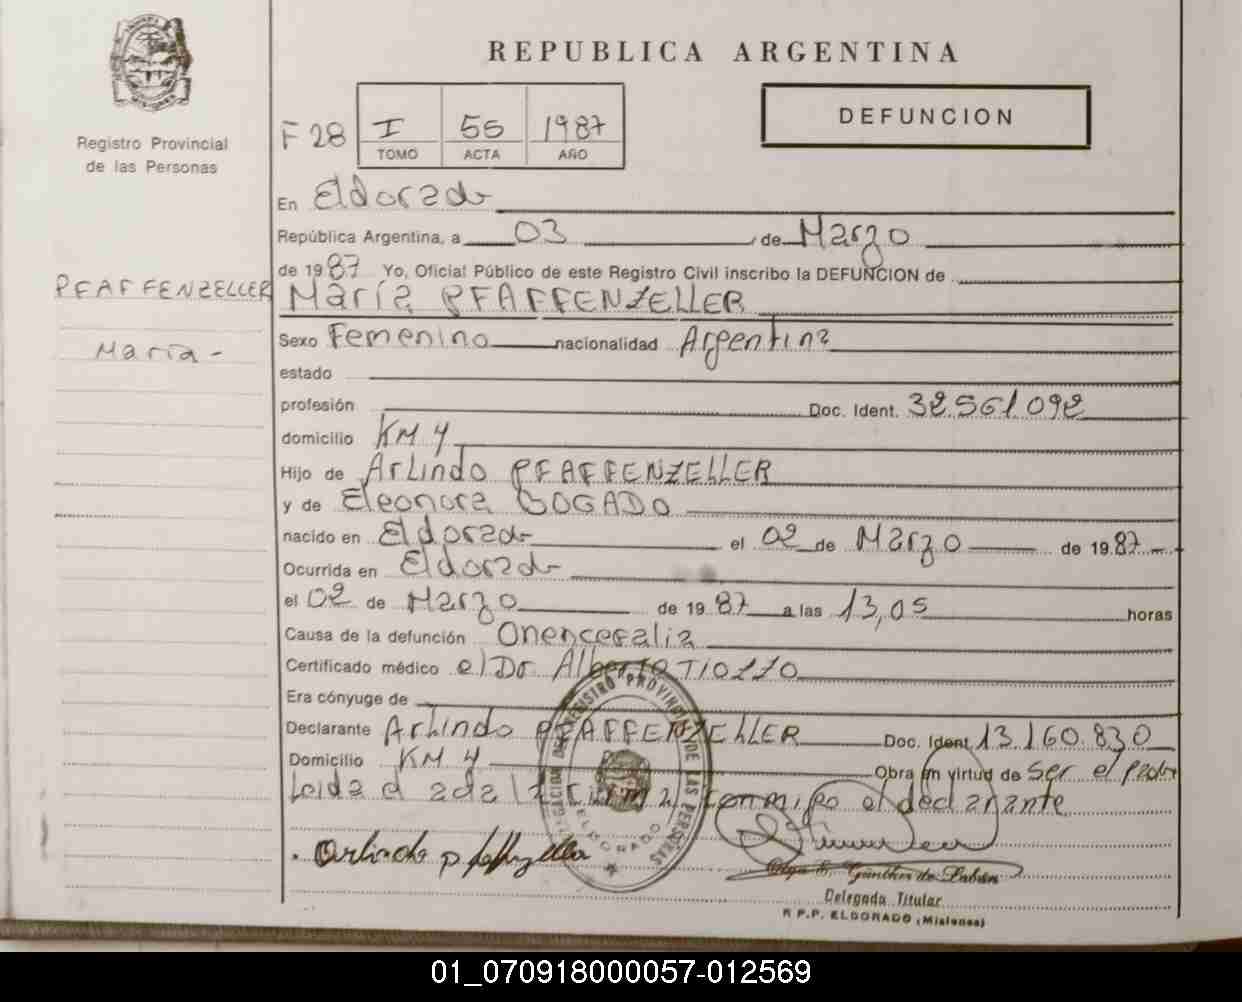 REPUBLICA ARGENTINA
DEFUNCION
MISIONES
Registro Provincial
de las Personas
F 28
I 55 1987
TOMO ACTA AÑO
En Eldorado
República Argentina, a 03 de Marzo
de 1987 Yo, Oficial Público de este Registro Civil inscribo la DEFUNCION de
PFAFFENZELLER
María PFAFFENZELLER
María -
Sexo Femenino nacionalidad Argentina
estado
profesión Doc. Ident. 32.561.092
domicilio KM 4
Hijo de Arlindo PFAFFENZELLER
y de Eleonora BOGADO
nacido en Eldorado el 02 de Marzo de 1987
Ocurrida en Eldorado
el 02 de Marzo de 1987 a las 13,05 horas
Causa de la defunción Onencefalia
Certificado médico el Dr Alberto TIOZZO
Era cónyuge de
Declarante Arlindo PFAFFENZELLER Doc. Ident. 13.160.830
Domicilio KM 4 Obra en virtud de ser el padre
Leida el acta la firma conmigo el declarante
DELEGACION DEL REGISTRO PROVINCIAL DE LAS PERSONAS
ELDORADO
Arlindo
Olga E. Günther de Labán
Delegada Titular
R.P.P. ELDORADO (Misiones)
01_070918000057-012569